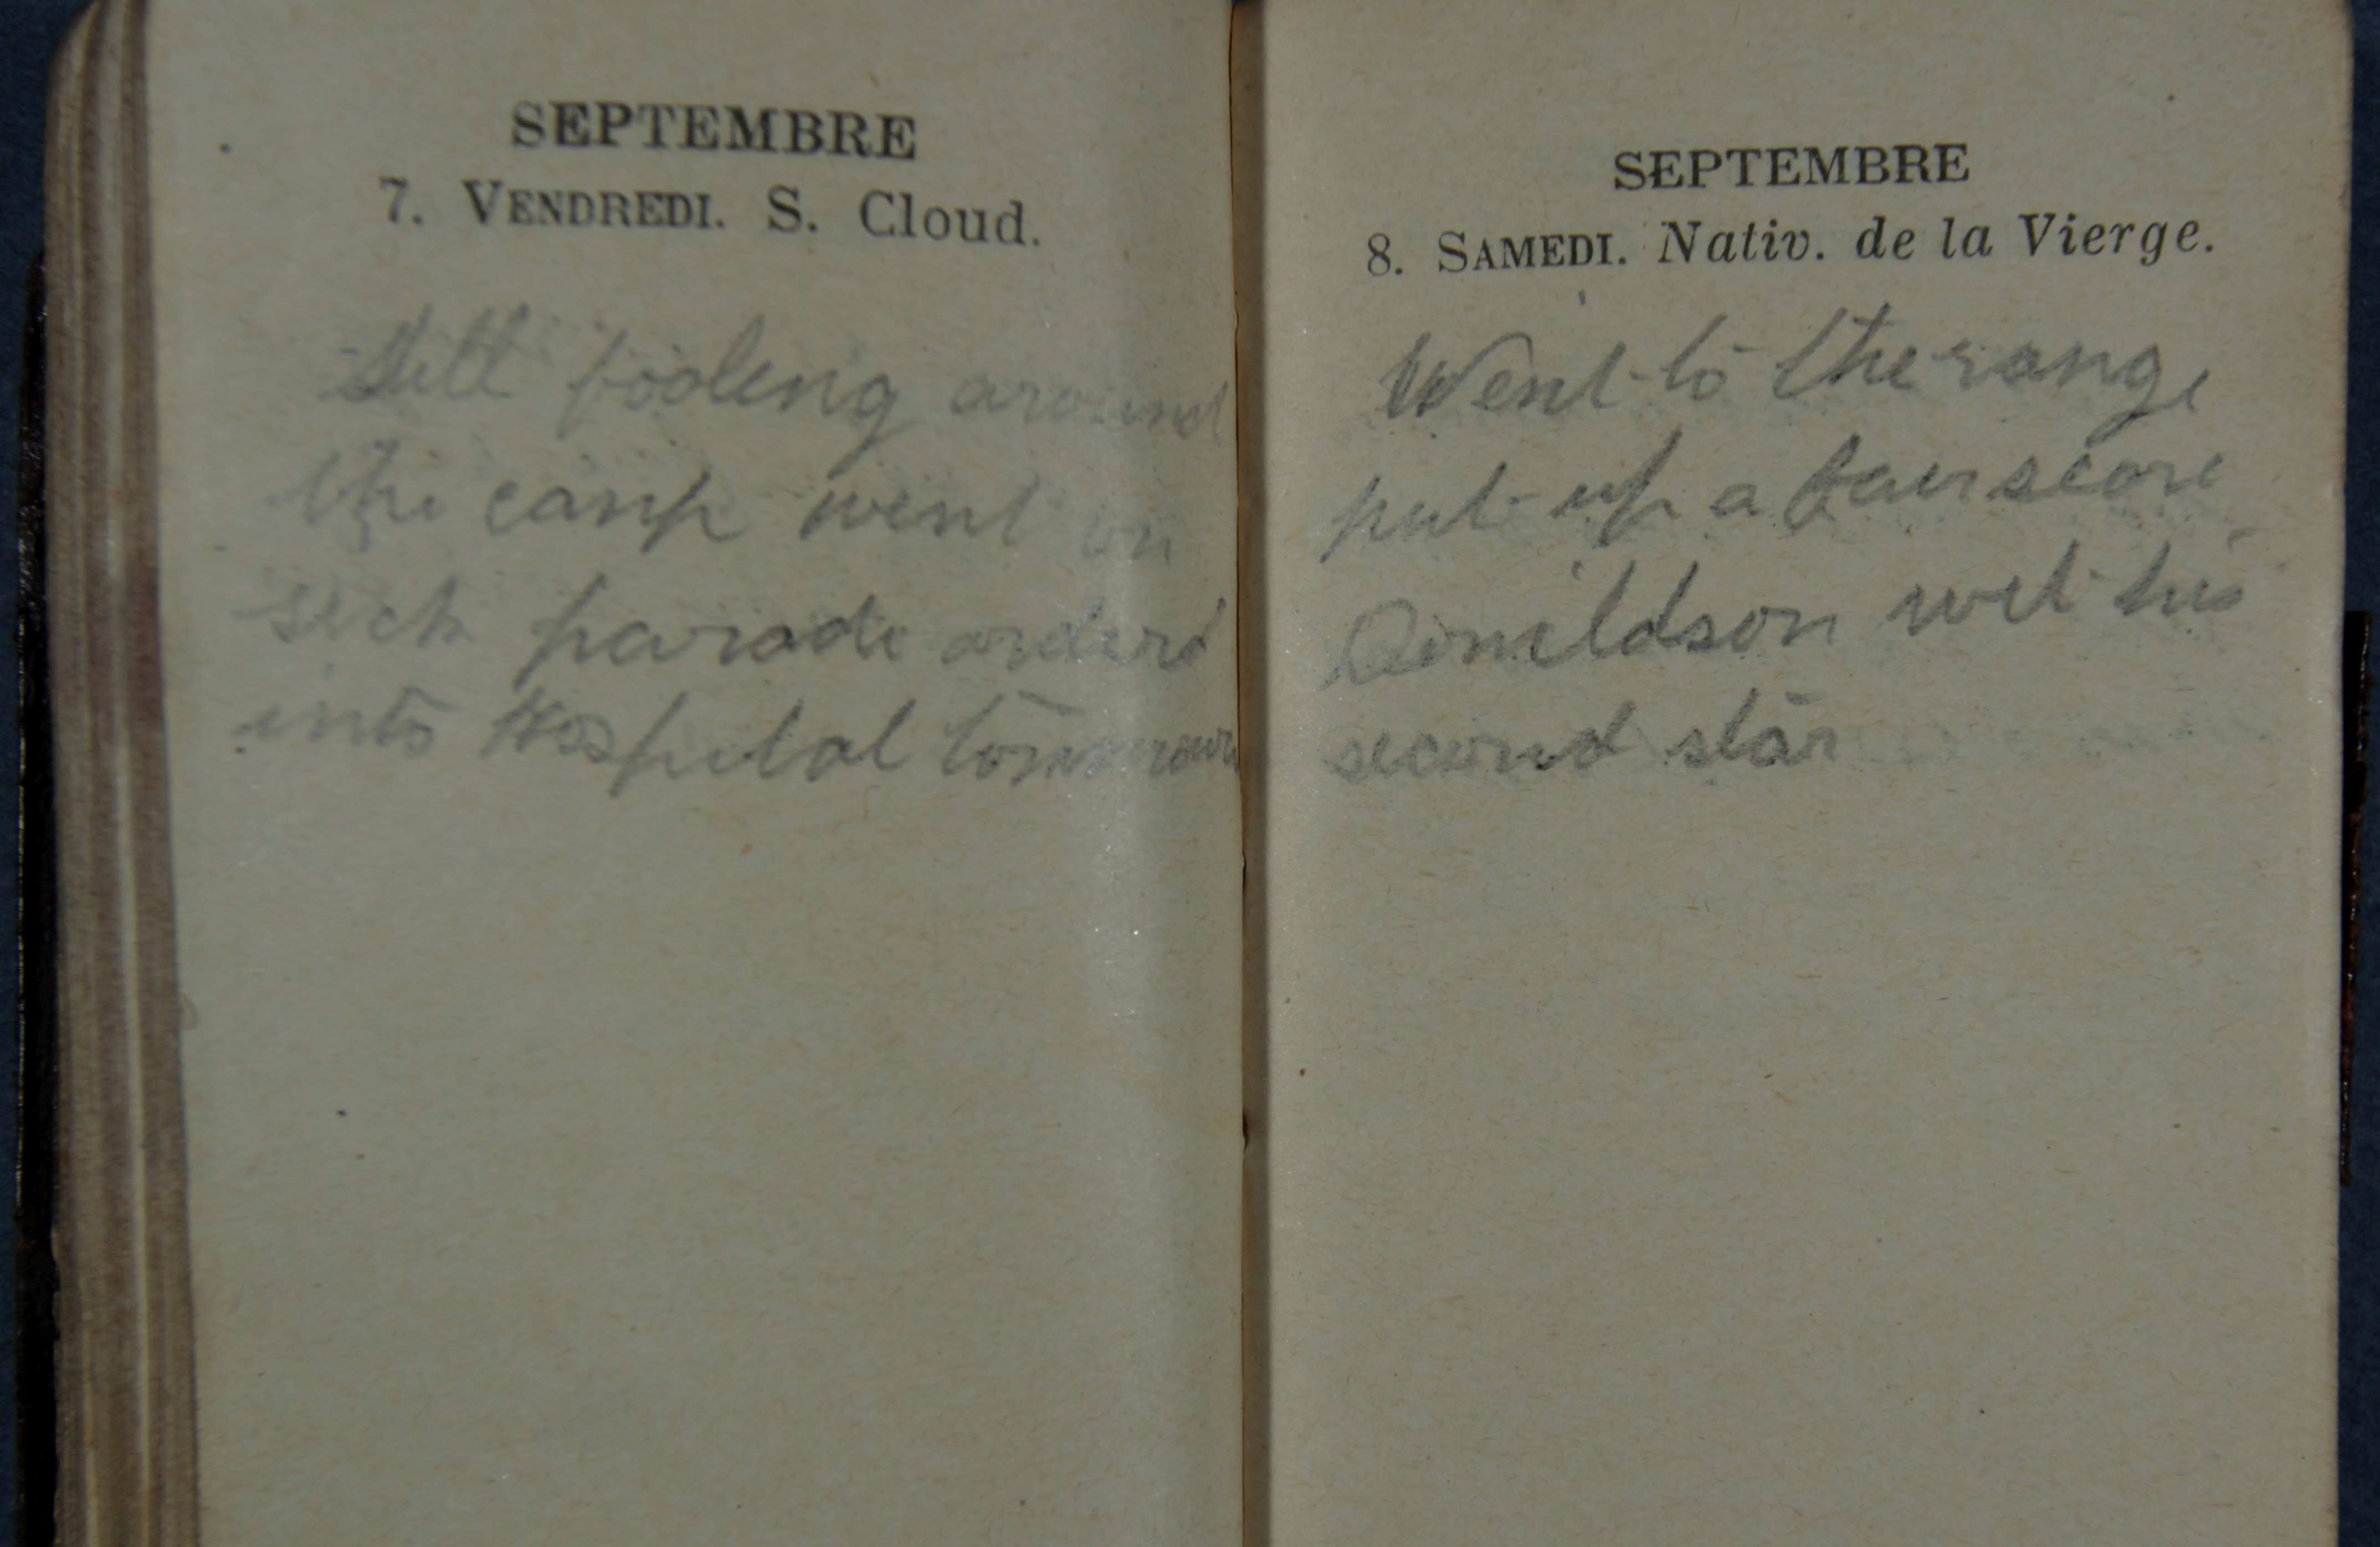 SEPTEMBRE
7. VENDREDI. S. Cloud.
Still fooling around
the camp went on
sick parade ordered
into Hospital tomorrow
SEPTEMBRE
8. SAMEDI. Nativ. de la Vierge.
Went to the range
put up a fair score
Donaldson wet his
second star